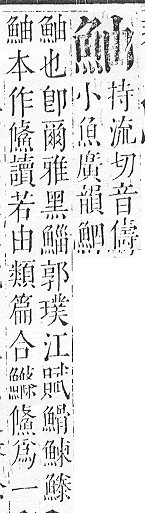 鮋
持流切音儔
小魚廣韻鮂
鮋也卽爾雅黑鰦郭璞江賦䱻鰊鰧
鮋本作鯈讀若由類篇合鰷鯈爲一